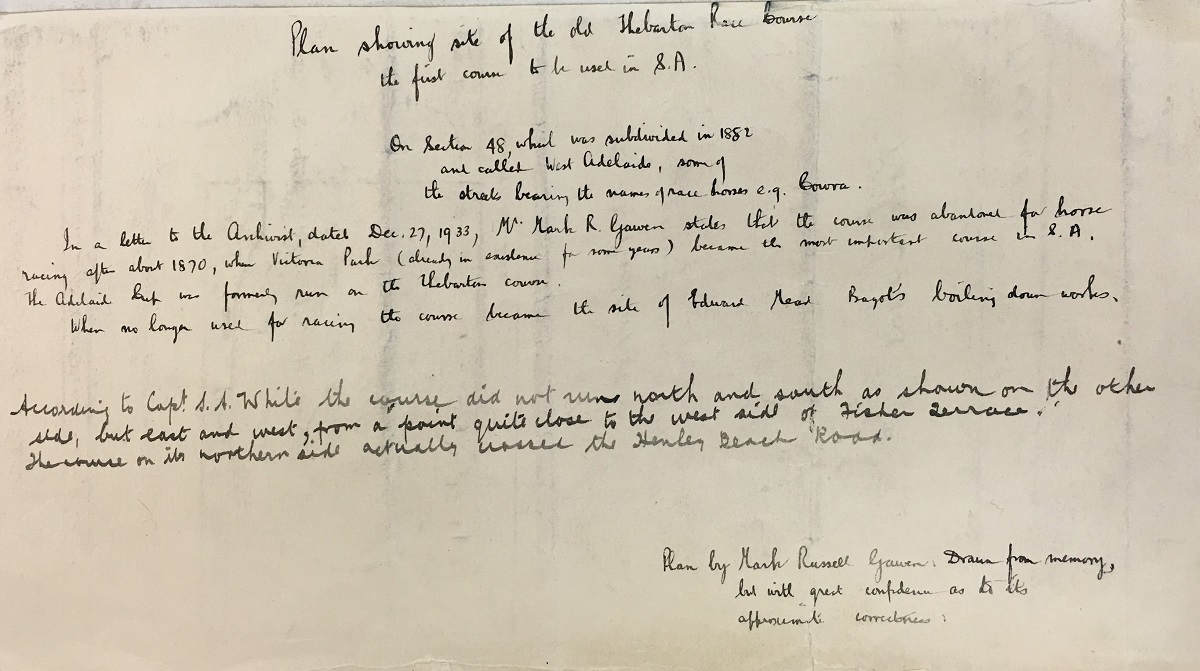 Plan showing site of the old Thebarton Race Course
the first course to be used in S.A.
On Section 48, which was subdivided in 1882
and called West Adelaide, some of
the streets bearing the names of race horses e.g. Cowra.
In a letter to the Archivist, dated Dec. 27, 1933, Mr. Mark R. Gawen states that the course was abandoned for horse
racing after about 1870, when Victoria Park (already in existence for some years) became the most important course in S.A.
The Adelaide Cup was formerly run on the Thebarton course.
When no longer used for racing the course became the site of Edward Mead Bagot's boiling down works.
According to Capt. S. A. White the course did not run north and south as shown on the other
side, but east and west, from a point quite close to the west side of Fisher Terrace.
The course on its northern side actually crossed the Henley Beach Road.
Plan by Mark Russell Gawen: Drawn from memory,
but with great confidence as to its
approximate correctness: